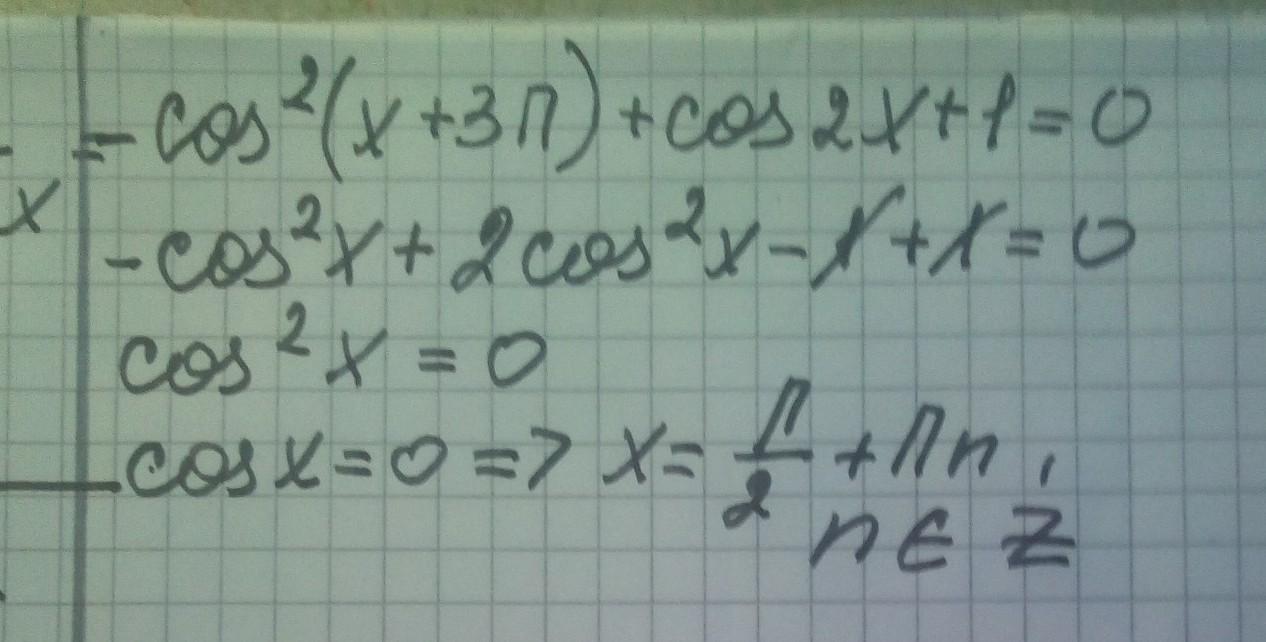 - cos²(x+3π)+cos2x+1=0
x
-cos²x+2cos²x-1+1=0
cos²x=0
cosx=0 => x= π/2 +πn,
n∈Z